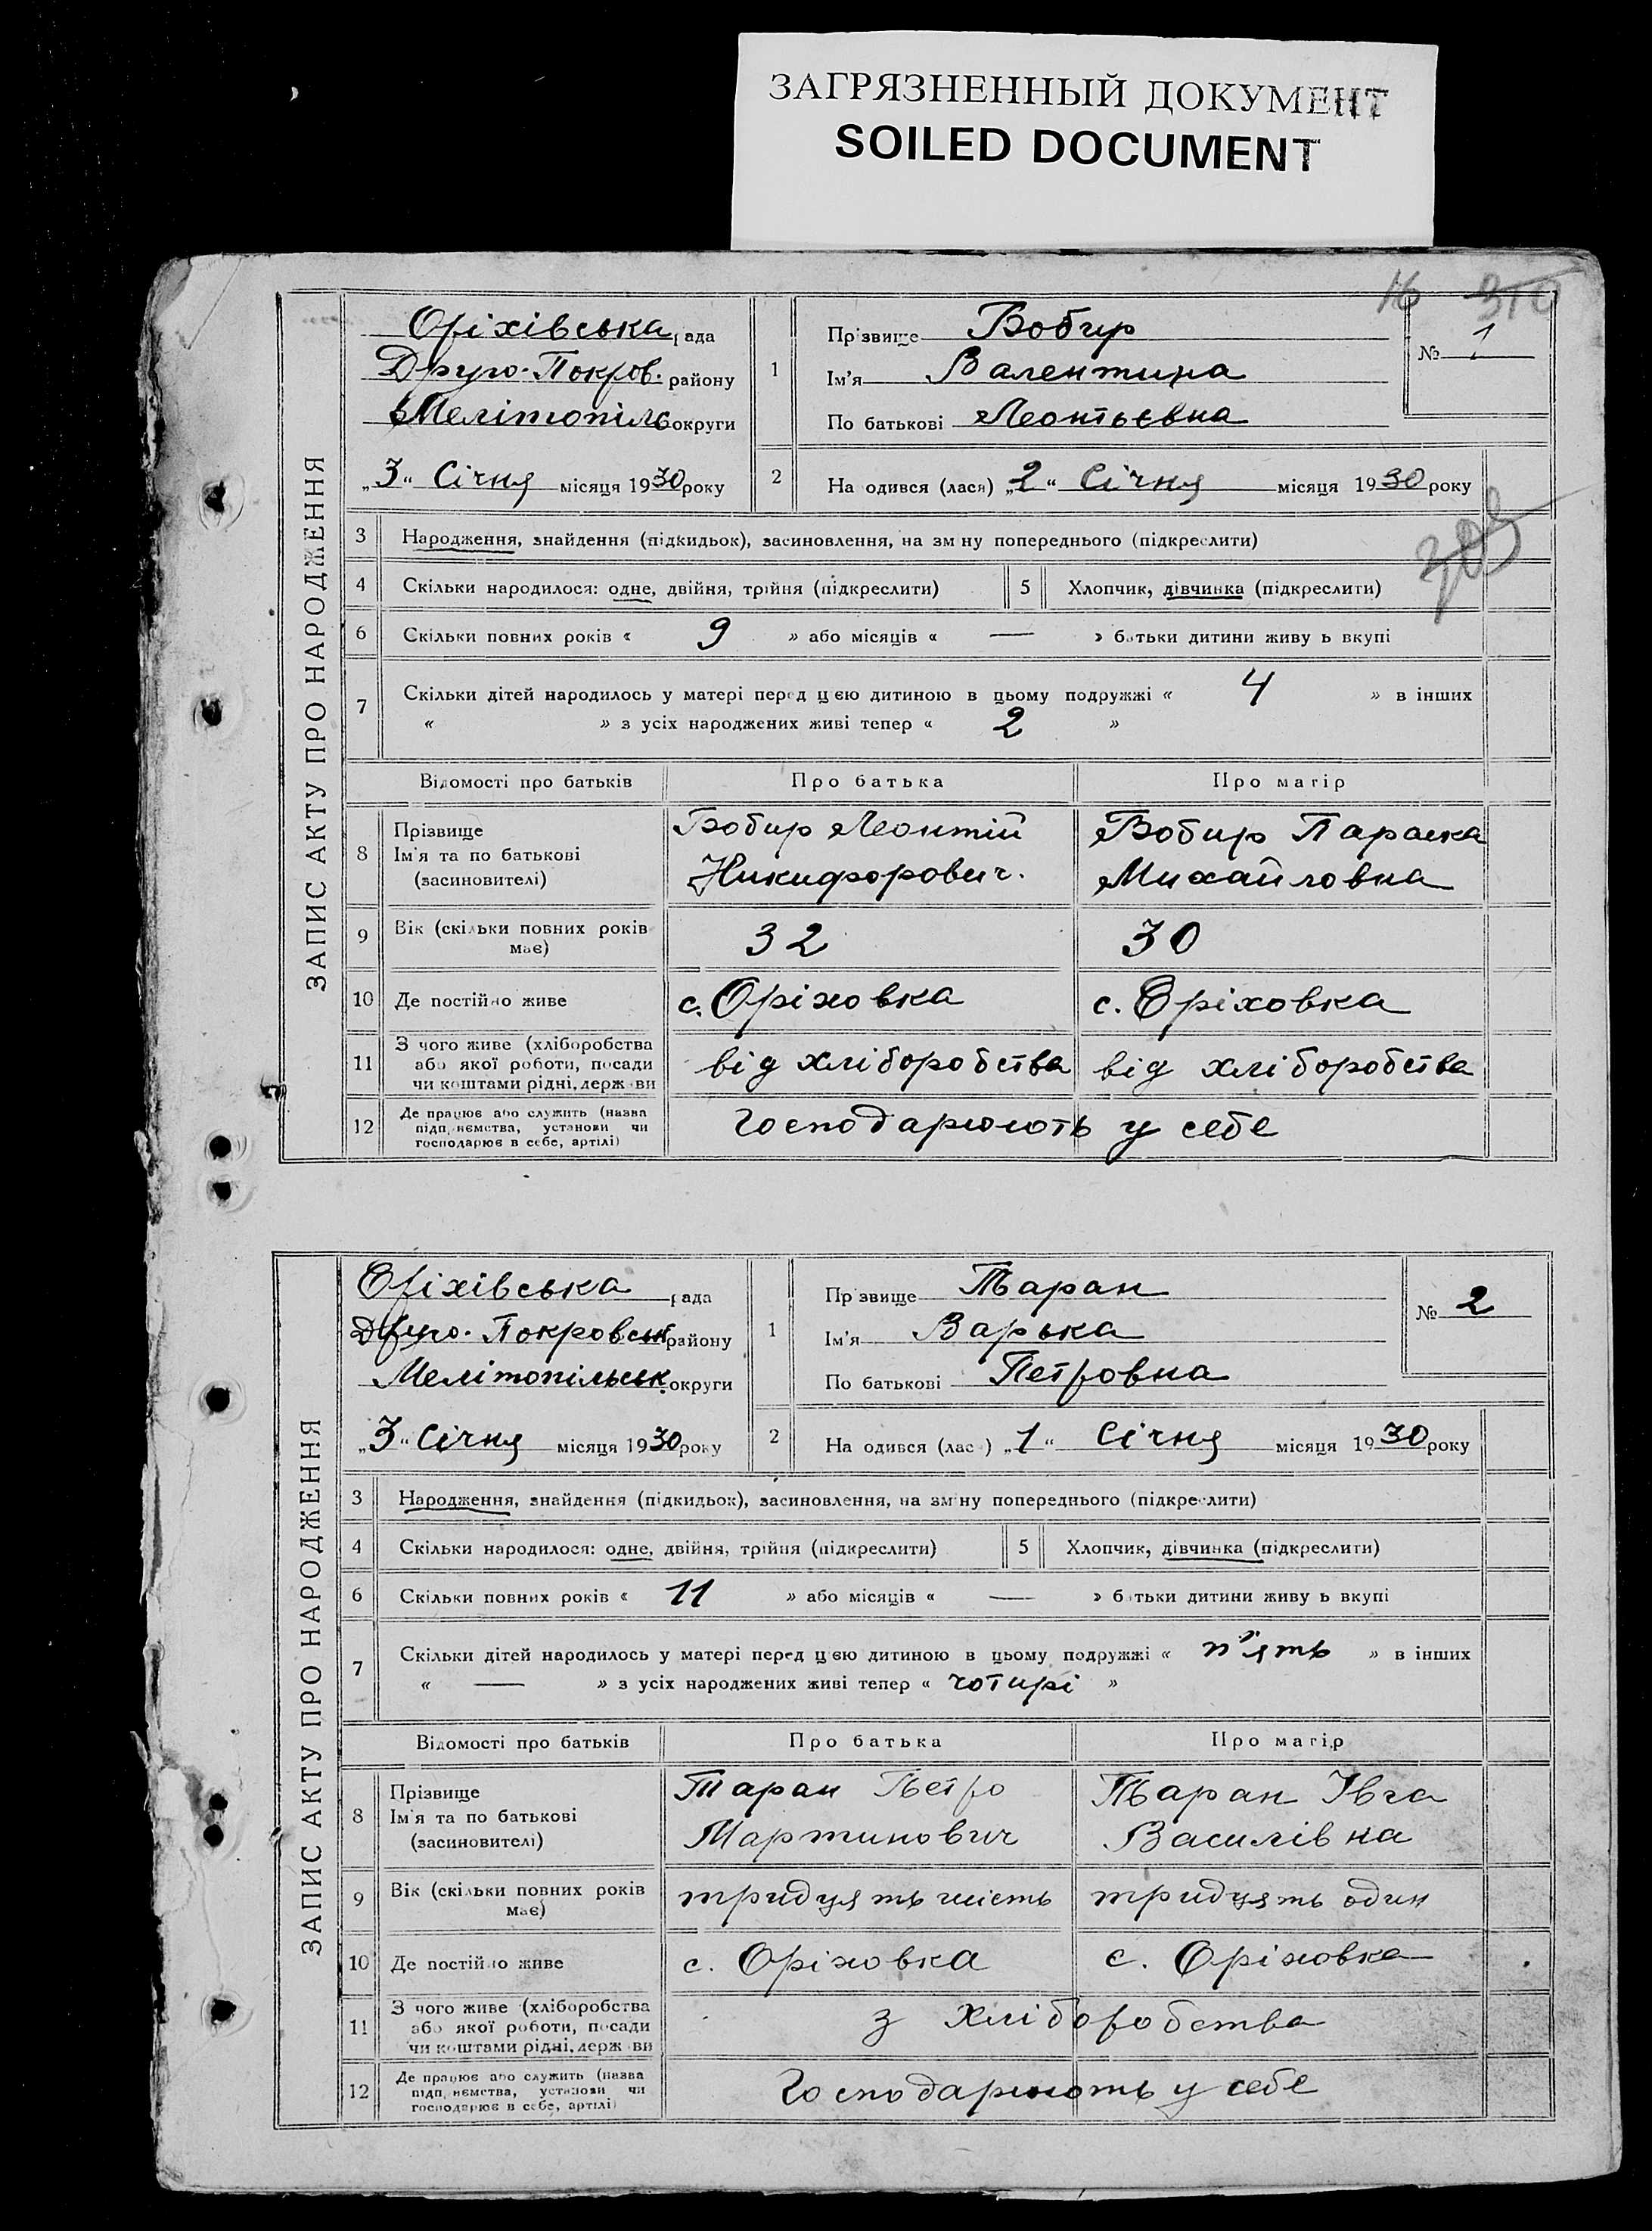 ЗАГРЯЗНЕННЫЙ ДОКУМЕНТ
SOILED DOCUMENT
16
ЗАПИС АКТУ ПРО НАРОДЖЕННЯ
Оріхівська рада
Друго-Покров. району
Мелітопіль округи
„3“ Січня місяця 1930 року
1
Прізвище Бобир
Ім'я Валентина
По батькові Леонтьєвна
№ 1
2
Народився (лася) „2“ Січня місяця 1930 року
3 Народження, знайдення (підкидьок), засиновлення, на зміну попереднього (підкреслити)
4 Скільки народилося: одне, двійня, трійня (підкреслити) 5 Хлопчик, дівчинка (підкреслити)
6 Скільки повних років « 9 » або місяців « — » батьки дитини живуть вкупі
7 Скільки дітей народилось у матері перед цією дитиною в цьому подружжі « 4 » в інших
« » з усіх народжених живі тепер « 2 »
Відомості про батьків Про батька Про матір
8 Прізвище Ім'я та по батькові (засиновителі)
Бобир Леонтій Никифорович.
Бобир Параска Михайловна
9 Вік (скільки повних років має) 32 30
10 Де постійно живе с. Оріховка с. Оріховка
11 З чого живе (хліборобства або якої роботи, посади чи коштами рідні, держави
від хліборобства від хліборобства
12 Де працює або служить (назва підприємства, установи чи господарює в себе, артілі)
Господарюють у себе
ЗАПИС АКТУ ПРО НАРОДЖЕННЯ
Оріхівська рада
Друго-Покровськ району
Мелітопільськ. округи
„3“ Січня місяця 1930 року
1
Прізвище Таран
Ім'я Варька
По батькові Петровна
№ 2
2
Народився (лася) „1“ Січня місяця 1930 року
3 Народження, знайдення (підкидьок), засиновлення, на зміну попереднього (підкреслити)
4 Скільки народилося: одне, двійня, трійня (підкреслити) 5 Хлопчик, дівчинка (підкреслити)
6 Скільки повних років « 11 » або місяців « — » батьки дитини живуть вкупі
7 Скільки дітей народилось у матері перед цією дитиною в цьому подружжі « п'ять » в інших
« — » з усіх народжених живі тепер « чотирі »
Відомості про батьків Про батька Про матір
8 Прізвище Ім'я та по батькові (засиновителі)
Таран Петро Мартинович
Таран Івга Василівна
9 Вік (скільки повних років має) тридцять шість тридцять один
10 Де постійно живе с. Оріховка с. Оріховка
11 З чого живе (хліборобства або якої роботи, посади чи коштами рідні, держави
з хліборобства
12 Де працює або служить (назва підприємства, установи чи господарює в себе, артілі)
Господарюють у себе